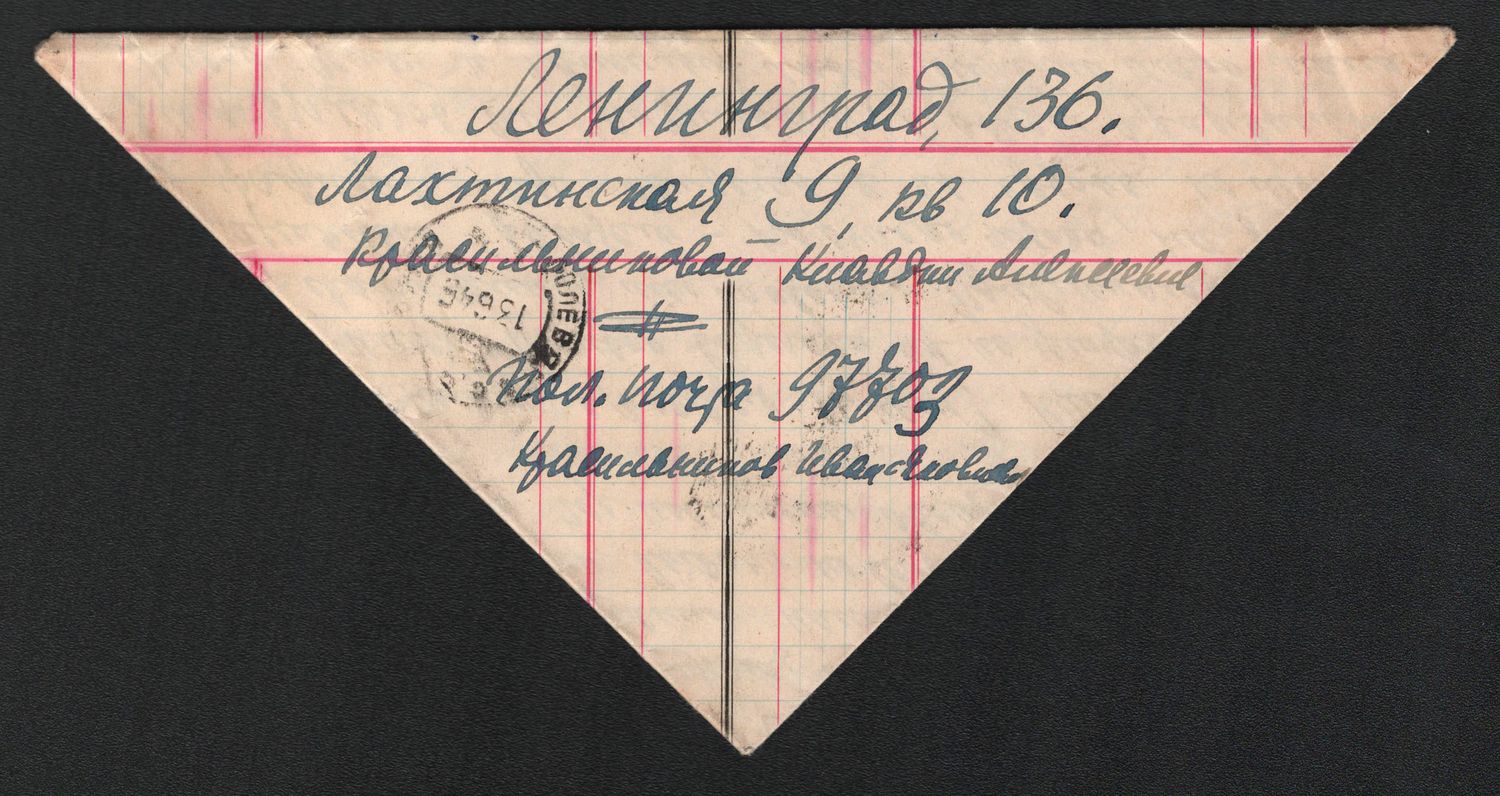 Ленинград, 136.
Лахтинская 9, кв 10.
Красильниковой Клавдии Алексеевне
Пол. почта 97703
Красильников Иван Яковлев
ПОЛЕВА
13646